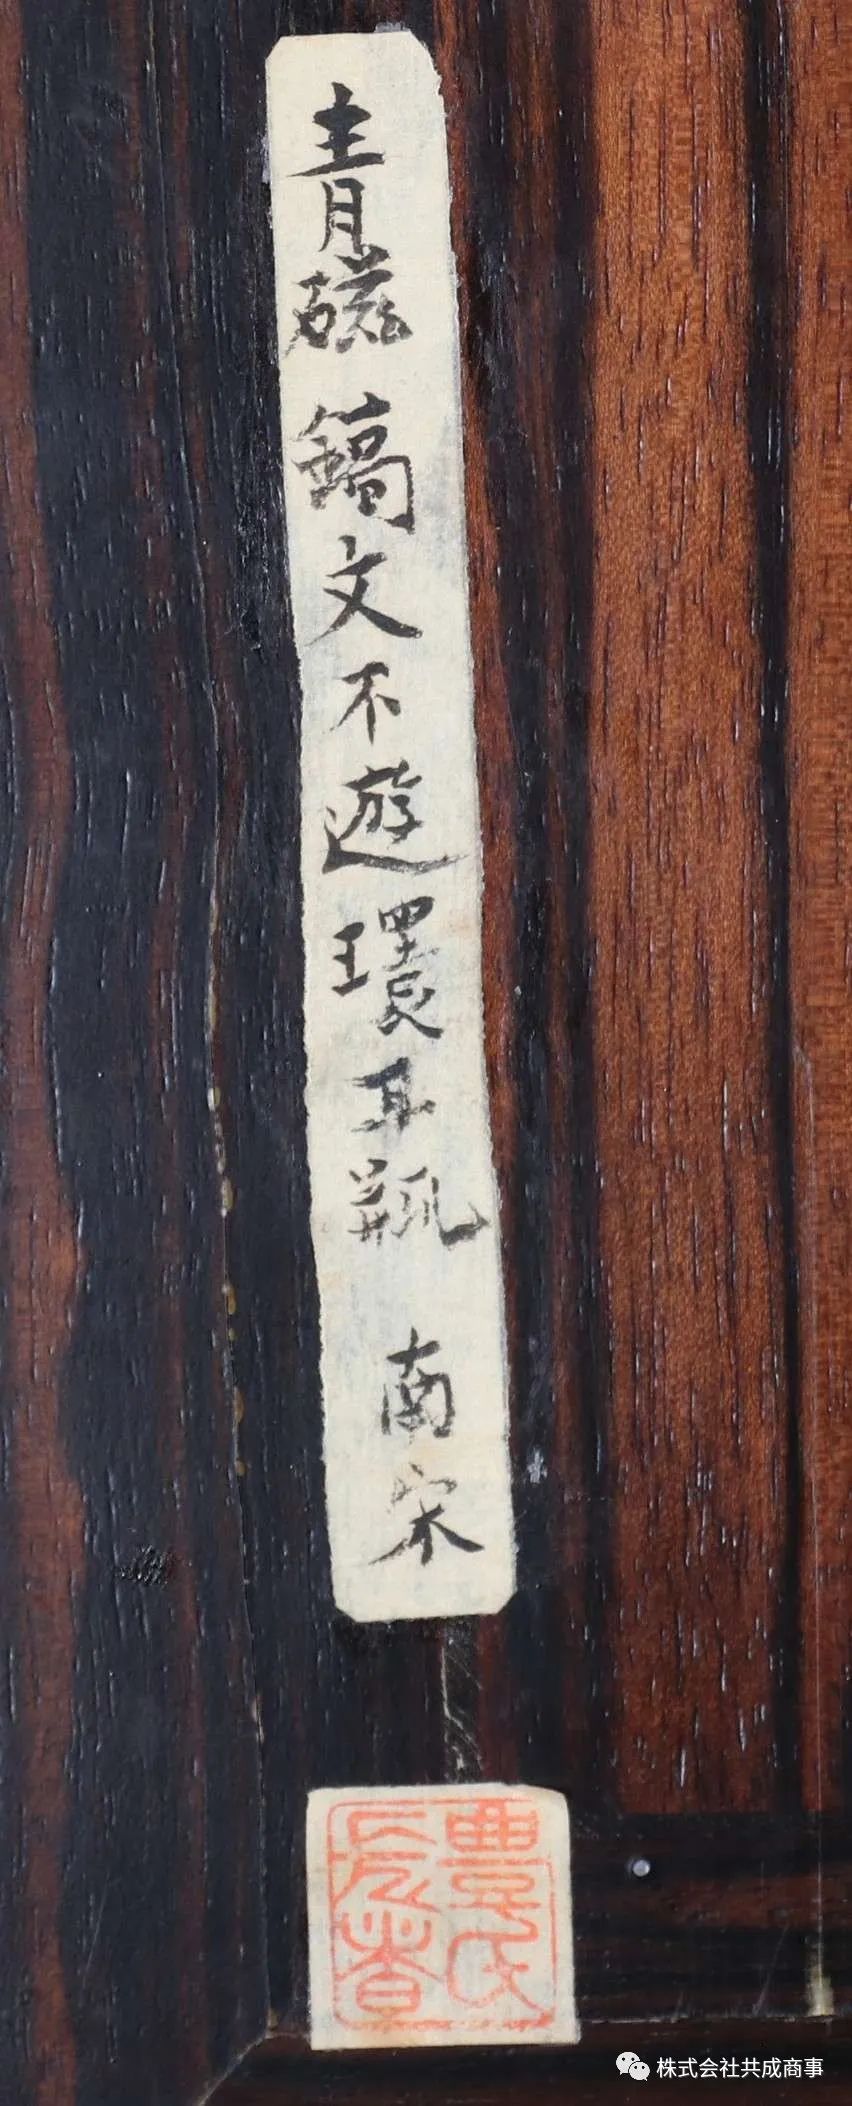 青磁鎬文不遊環耳瓶 南宋
農氏
株式会社共成商事